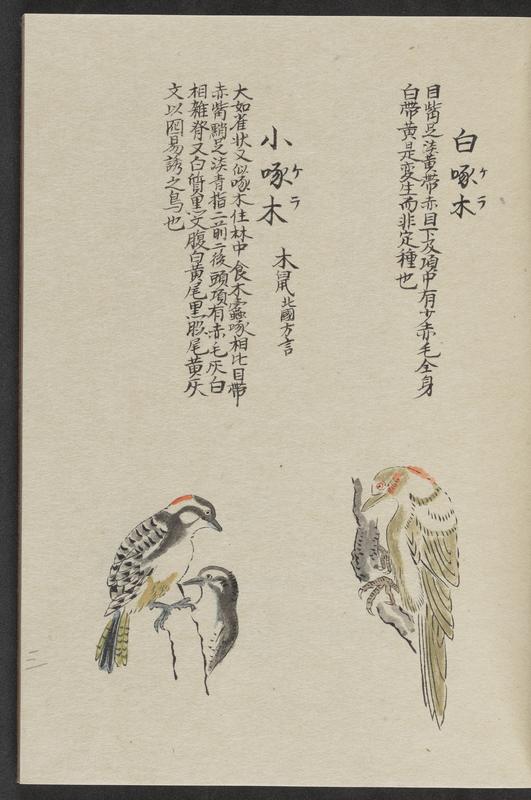 白啄木
ケラ
目觜足淡黄帯赤目下及項中有少赤毛全身
白帯黄是変生而非定種也
小啄木
ケラ
木鼠 北國方言
大如雀状又似啄木住林中食木蠧啄相比目帯
赤觜黯足淡青指二前二後頭項有赤毛灰白
相雑脊又白質黒文腹白黄尾黒股尾黄灰
文以囮易誘之鳥也
三